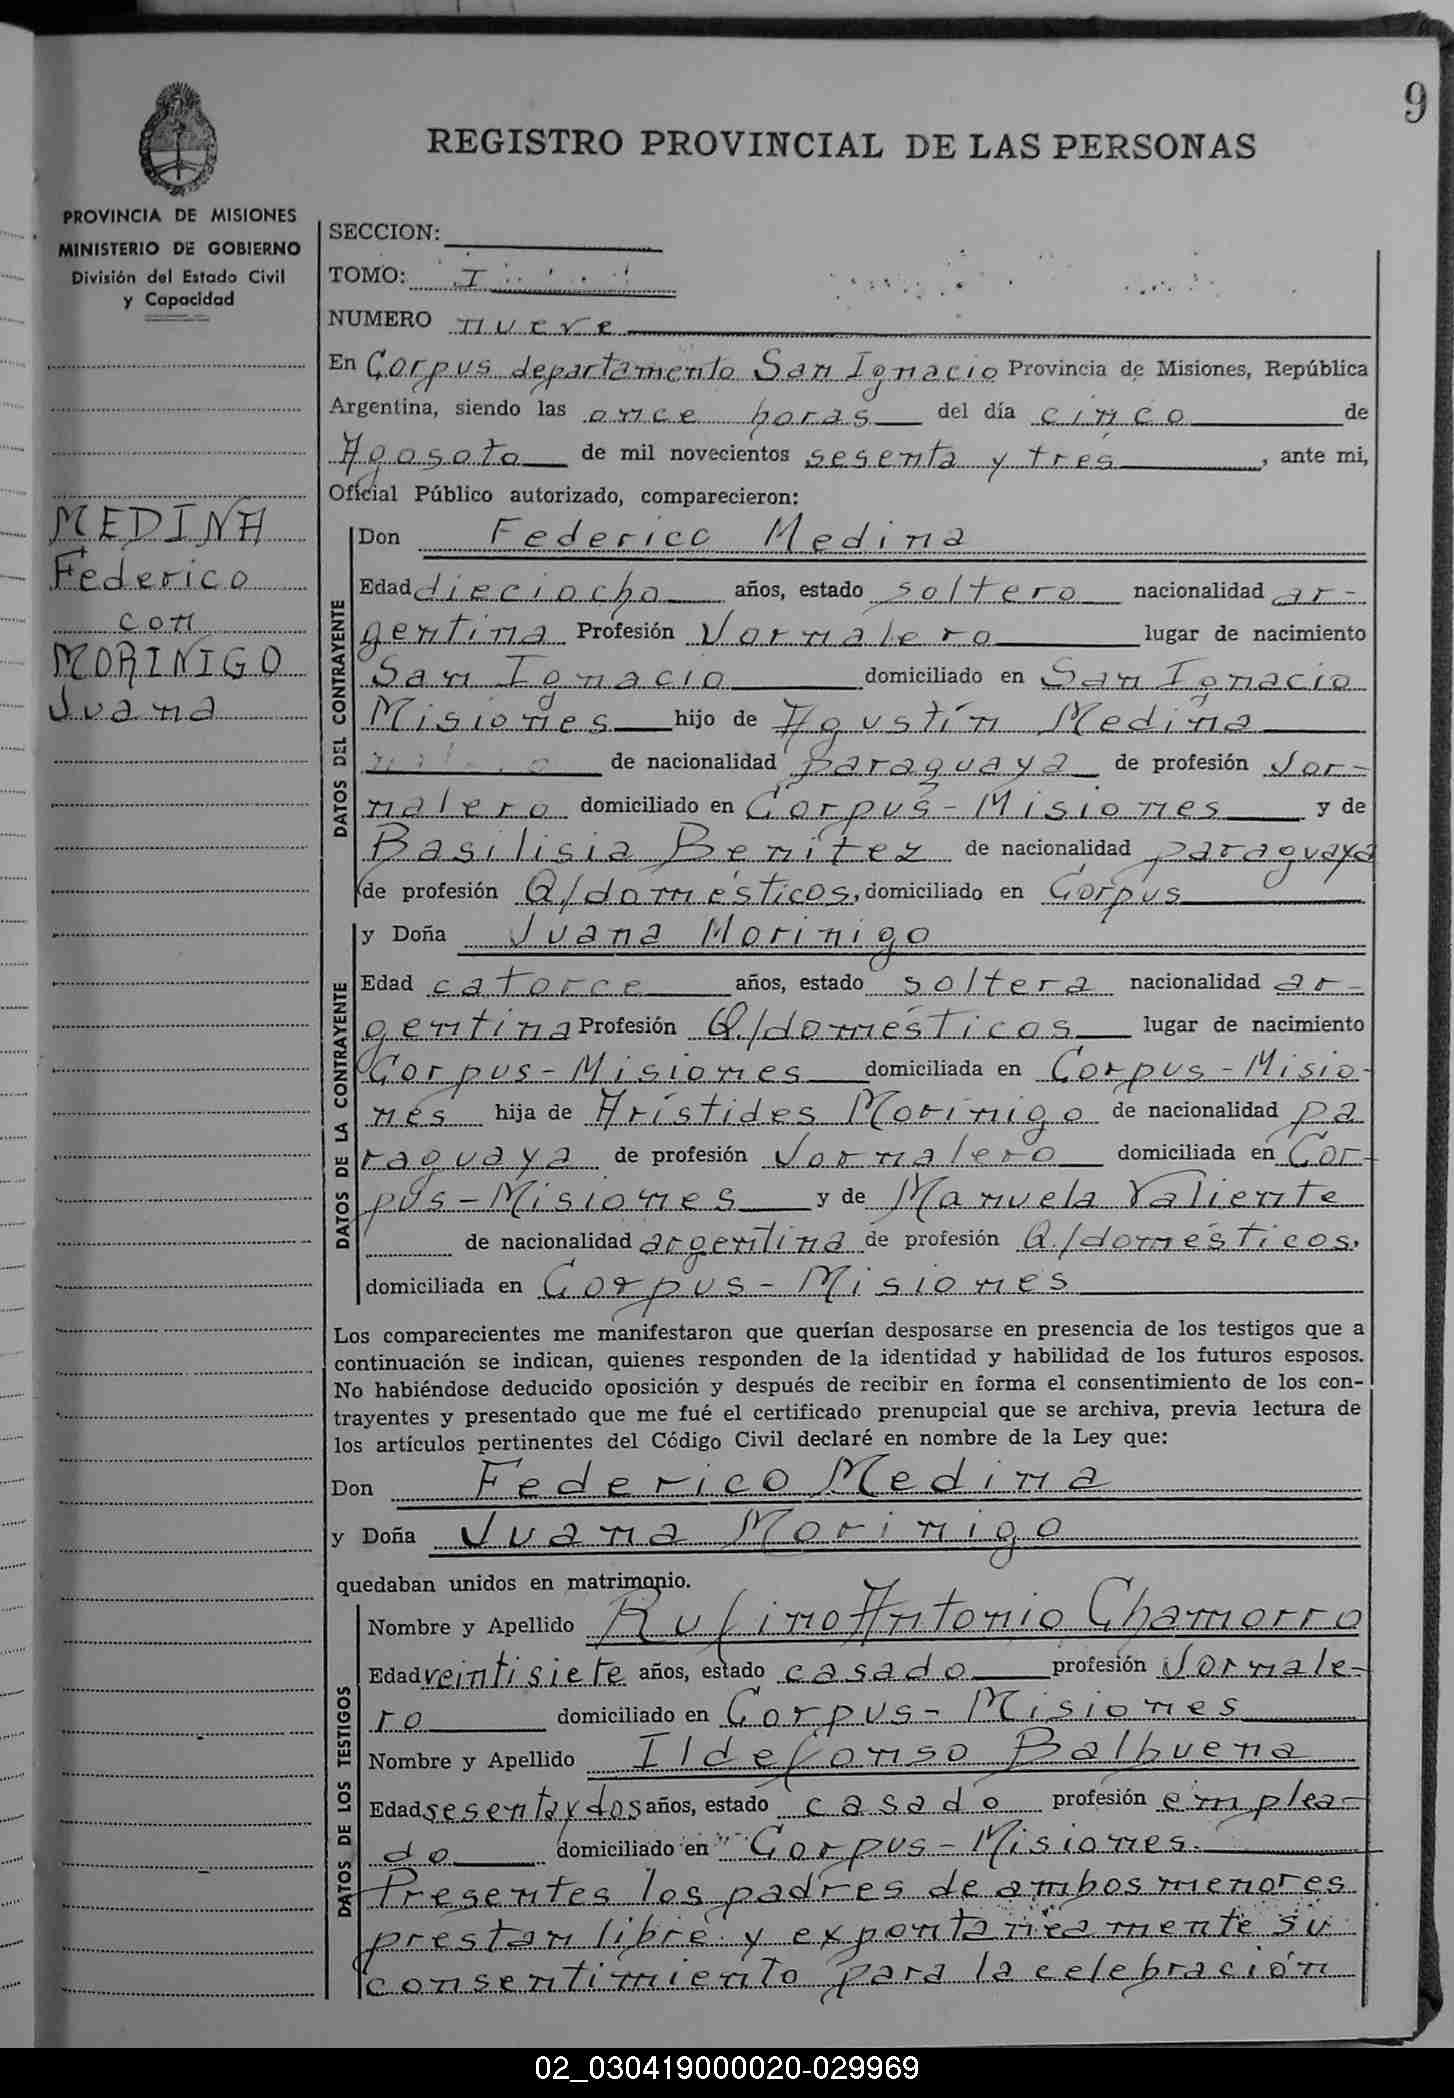 9
REGISTRO PROVINCIAL DE LAS PERSONAS
PROVINCIA DE MISIONES
MINISTERIO DE GOBIERNO
División del Estado Civil
y Capacidad
MEDINA
Federico
con
MORINIGO
Juana
SECCION:
TOMO: I
NUMERO nueve
En Corpus departamento San Ignacio Provincia de Misiones, República
Argentina, siendo las once horas del día cinco de
Agosoto de mil novecientos sesenta y tres, ante mi,
Oficial Público autorizado, comparecieron:
DATOS DEL CONTRAYENTE
Don Federico Medina
Edad dieciocho años, estado soltero nacionalidad ar-
gentina Profesión Jornalero lugar de nacimiento
San Ignacio domiciliado en San Ignacio
Misiones hijo de Agustín Medina
de nacionalidad paraguaya de profesión Jor-
nalero domiciliado en Corpus - Misiones y de
Basilisia Benítez de nacionalidad paraguaya
de profesión Q/domésticos, domiciliado en Corpus
DATOS DE LA CONTRAYENTE
y Doña Juana Morinigo
Edad catorce años, estado soltera nacionalidad ar-
gentina Profesión Q/domésticos lugar de nacimiento
Corpus - Misiones domiciliada en Corpus - Misio-
nes hija de Arístides Morinigo de nacionalidad pa
raguaya de profesión Jornalero domiciliada en Cor-
pus - Misiones y de Manuela Valiente
de nacionalidad argentina de profesión Q/domésticos,
domiciliada en Corpus - Misiones
Los comparecientes me manifestaron que querían desposarse en presencia de los testigos que a
continuación se indican, quienes responden de la identidad y habilidad de los futuros esposos.
No habiéndose deducido oposición y después de recibir en forma el consentimiento de los con-
trayentes y presentado que me fué el certificado prenupcial que se archiva, previa lectura de
los artículos pertinentes del Código Civil declaré en nombre de la Ley que:
Don Federico Medina
y Doña Juana Morinigo
quedaban unidos en matrimonio.
DATOS DE LOS TESTIGOS
Nombre y Apellido Rufino Antonio Chamorro
Edad veintisiete años, estado casado profesión Jornale-
ro domiciliado en Corpus - Misiones
Nombre y Apellido Ildefonso Balbuena
Edad sesenta y dos años, estado casado profesión emplea-
do domiciliado en Corpus - Misiones.
Presentes los padres de ambos menores
prestan libre y expontáneamente su
consentimiento para la celebración
02_030419000020-029969